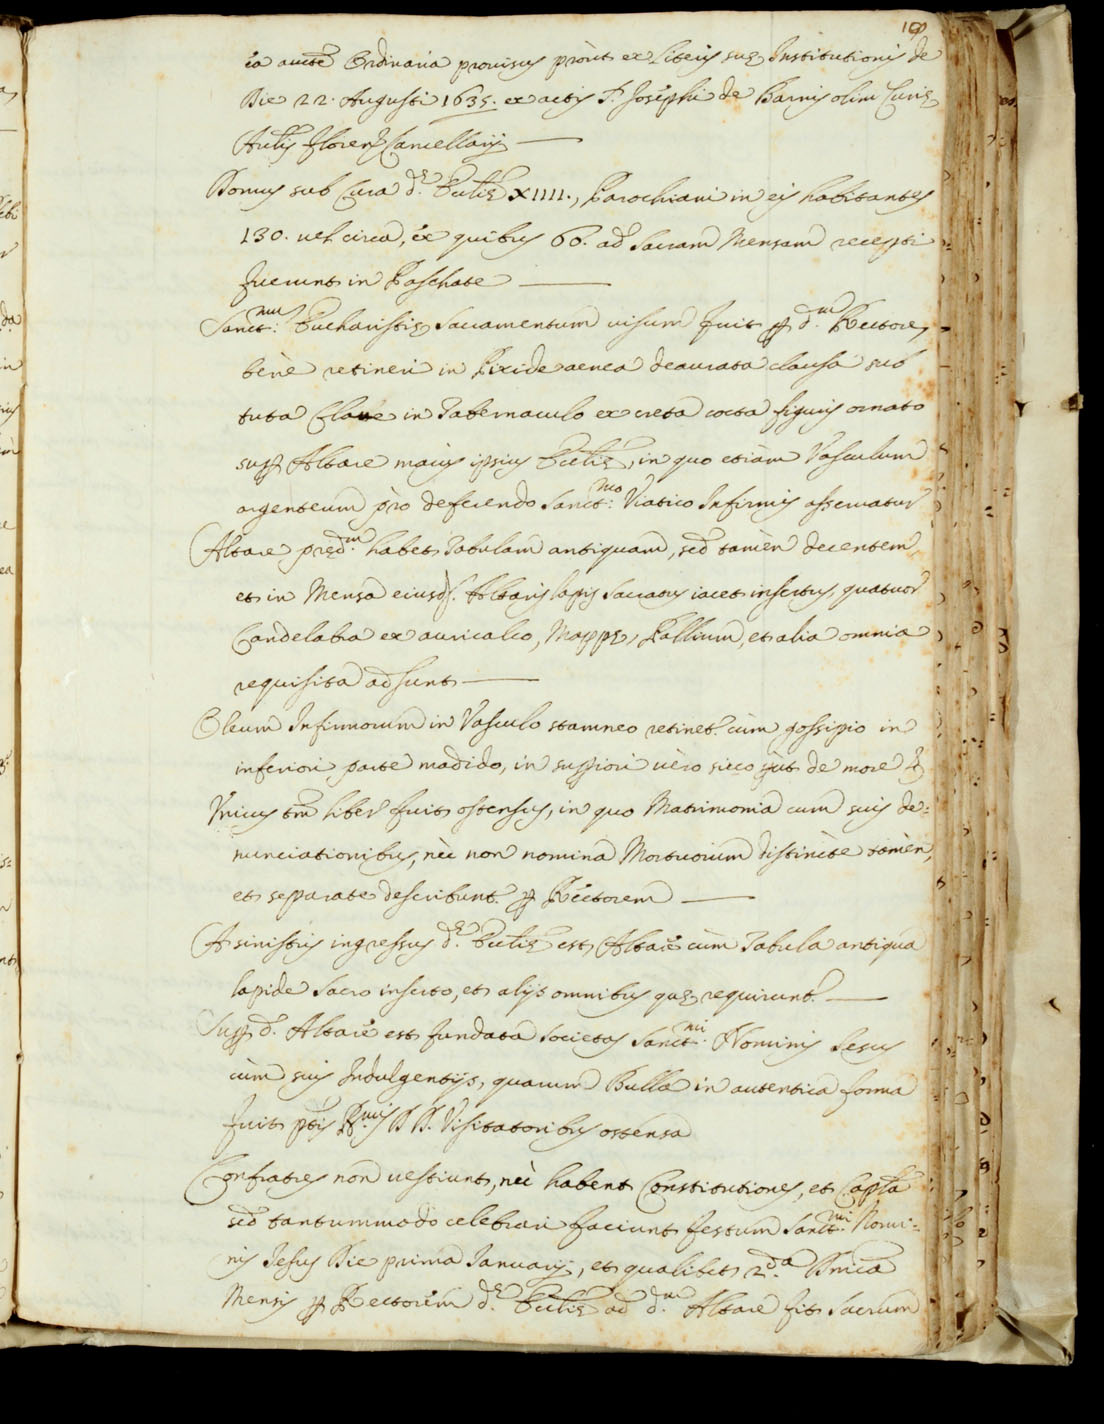 ea aucte Ordinaria provisus prout ex Literis suę Institutionis de
Die 22. Augusti 1635. ex actis S. Josephi de Barnis olim Curię
Archlis Floren Cancellarij
Domus sub Cura d.ę Ecclię XIIII., Parochiani in eis habitantes
130. vel circa, ex quibus 60. ad Sacram Mensam recepti
fuerunt in Paschate
Sanct:mum Eucharistię Sacramentum visum fuit p d.m Rectorem
bene retineri in Pixide aenea deaurata clausa sub
tuta Clave in Tabernaculo ex creta cocta figuris ornato
supr Altare maius ipsius Ecclię, in quo etiam Vasculum
argenteum pro deferendo Sanct:mo Viatico Infirmis asservatur
Altare pręd.m habet Tabulam antiquam, sed tamen decentem
et in Mensa eiusd. Altaris lapis Sacratus iacet insertus, quatuor
Candelabra ex auricalco, Mappę, Pallium, et alia omnia
requisita adsunt
Oleum Infirmorum in Vasculo stamneo retinet. cum gossipio in
inferiori parte madido, in supiori vero sicco put de more
Unicus tm liber fuit ostensus, in quo Matrimonia cum suis de=
nunciationibus, nec non nomina Mortuorum distincte tamen,
et separate describunt. p Rectorem
A sinistris ingressus d.ę Ecclię est Altare cum Tabula antiqua
lapide Sacro inserto, et alijs omnibus quę requirunt.
Supr d. Altare est fundata Societas Sanct.mi Nominis Jesus
cum suis Indulgentijs, quarum Bulla in autentica forma
fuit ptis R.mis DD. Visitatoribus ostensa
Confratres non vestiunt, nec habent Constitutiones, et Capla
sed tantummodo celebrari faciunt festum Sanct.mi Nomi=
nis Jesus Die prima Januarij, et qualibet 2.da Dnica
Mensis p Rectorem d.ę Ecclię ad d.m Altare fit Sacrum